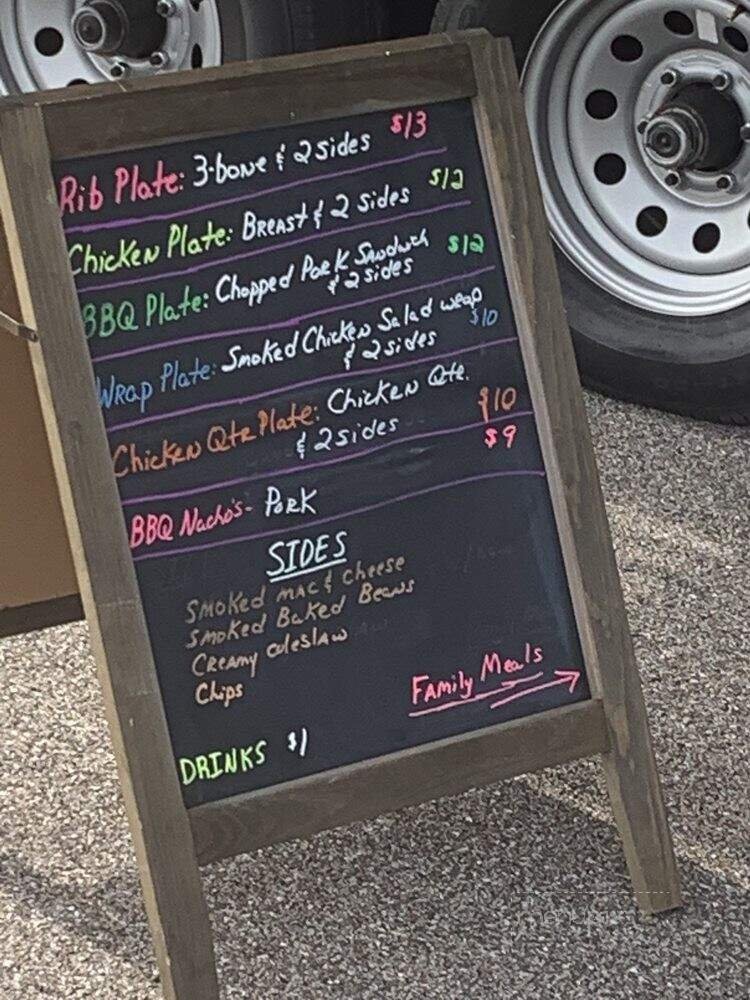 Rib Plate: 3-bone & 2 sides $13
Chicken Plate: Breast & 2 sides $12
BBQ Plate: Chopped Pork Sandwich $12
& 2 sides
Wrap Plate: Smoked Chicken Salad wrap
& 2 sides $10
Chicken Qtr Plate: Chicken Qtr.
& 2 sides $10
$9
BBQ Nacho's - Pork
SIDES
Smoked mac & cheese
Smoked Baked Beans
Creamy coleslaw
Chips
Family Meals
DRINKS $1